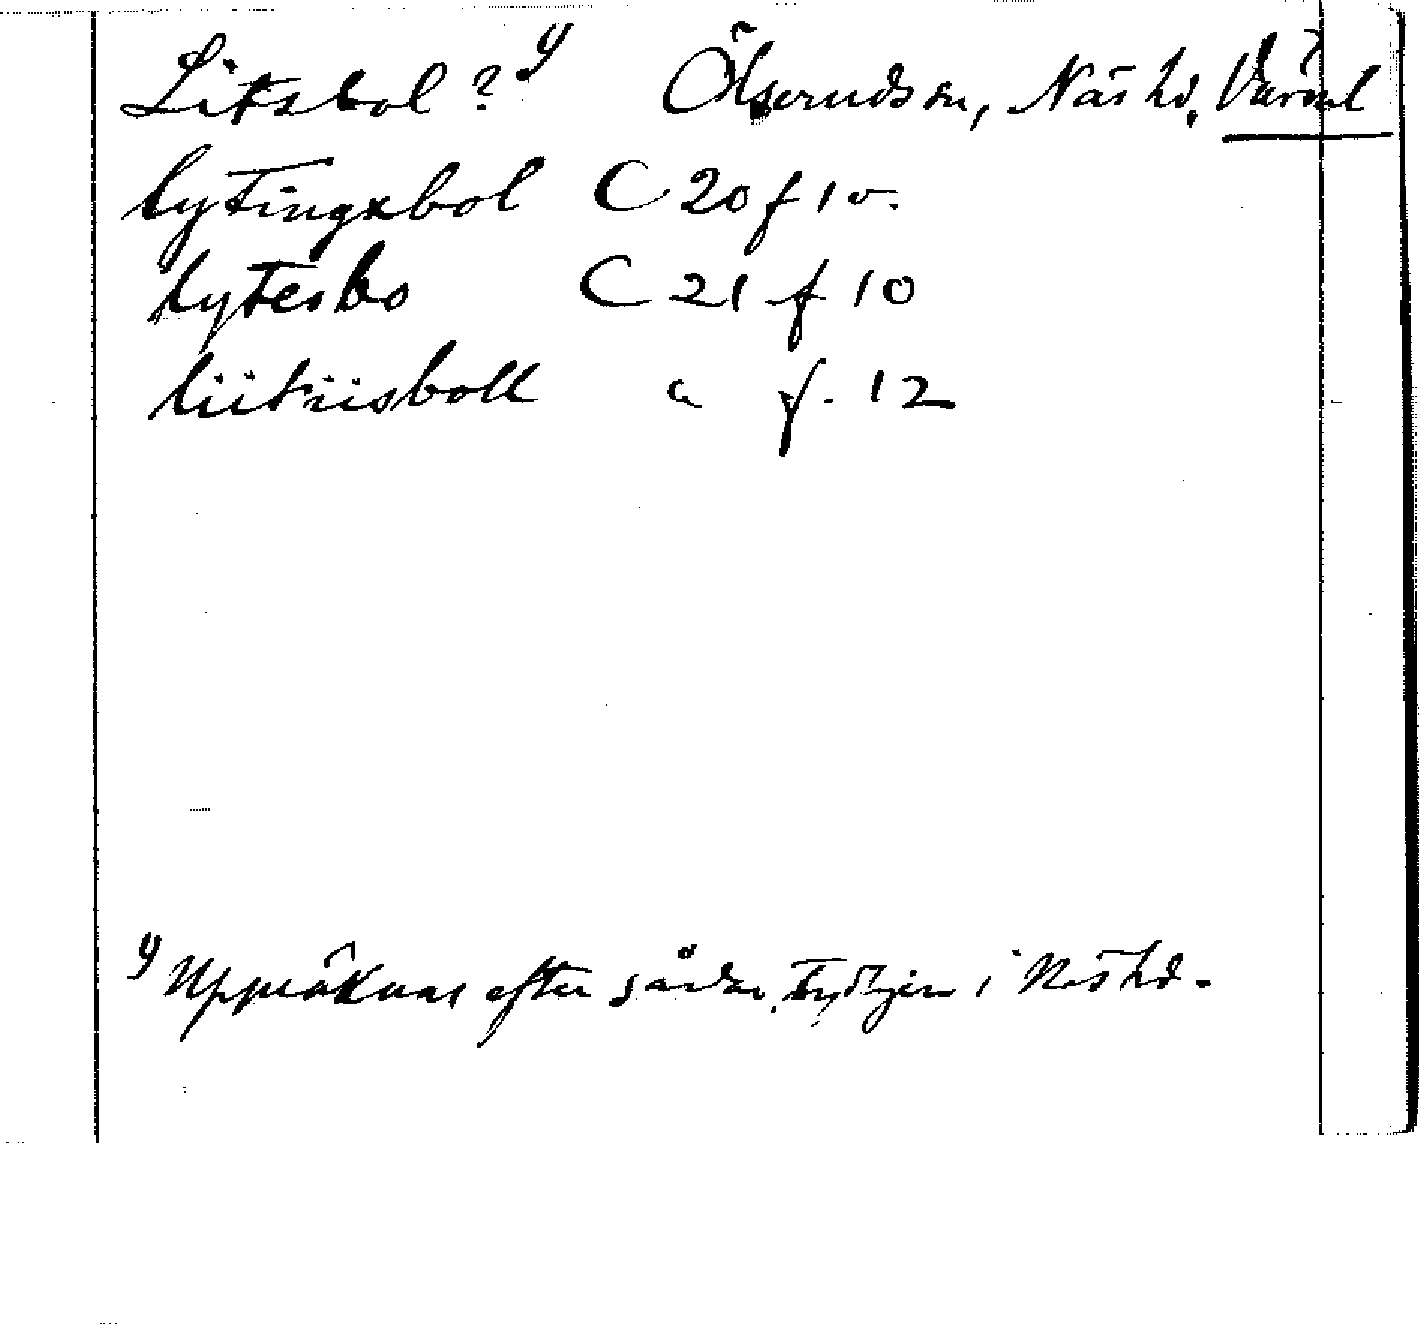 Litsbol? 1) Ölserudssn, Näs hd, Värml
lytingxbol C 20 f 1 v.
lytesbo C 21 f 10
liitiisboll " f. 12
1) Uppräknas efter gårdar i Näs hd.